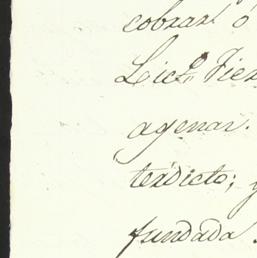 cobrar ó
Licdo. Fier
agenar.
terdicto; y
fundada.